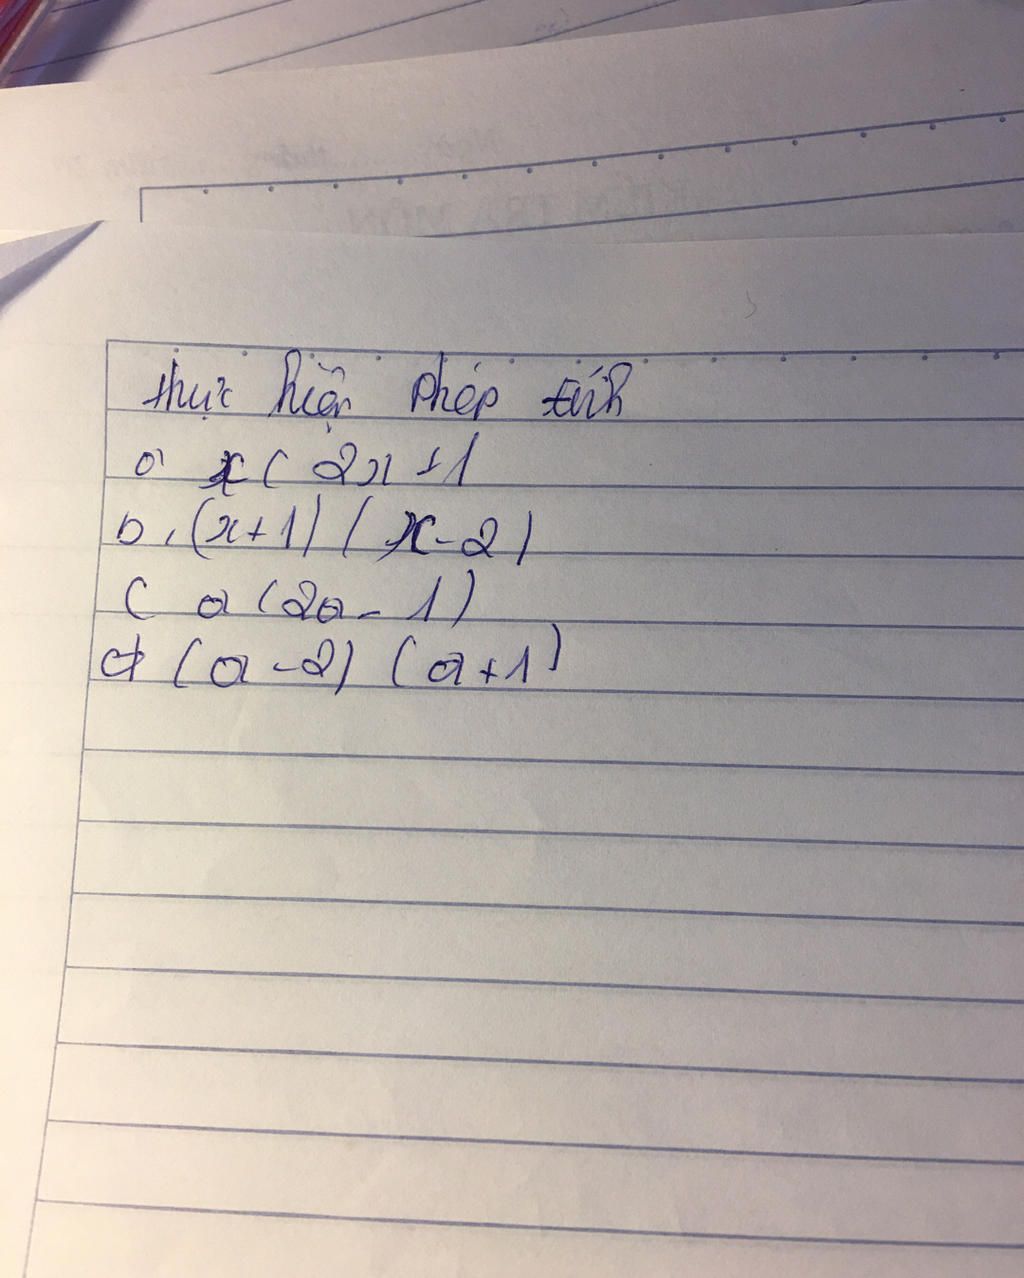 thực hiện phép tính
a x( 2x+1
b, (x+1) ( x-2)
c a (2a-1)
d (a-2) (a+1)